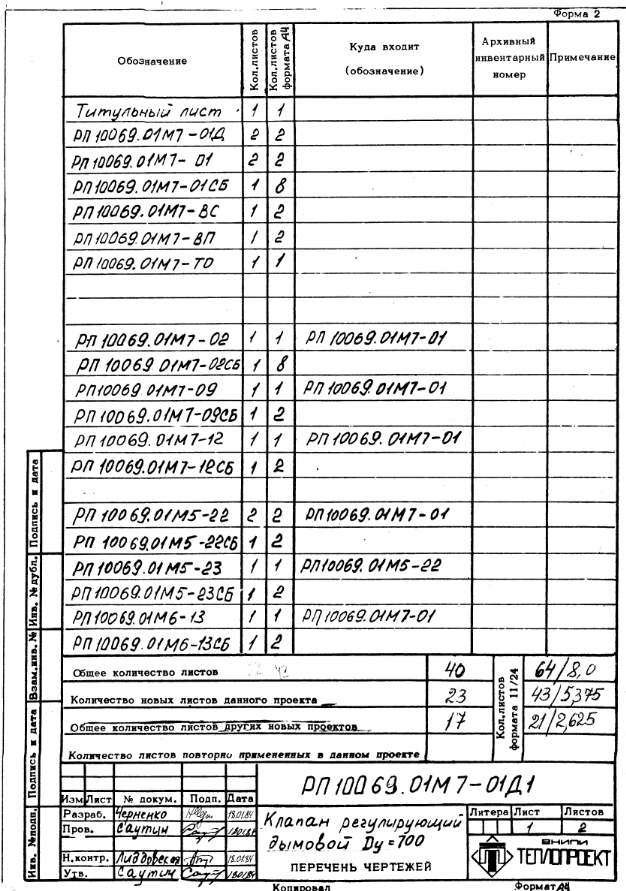 Форма 2
Обозначение Кол.листов Кол.листов формата А4 Куда входит (обозначение) Архивный инвентарный номер Примечание
Титульный лист 1 1
РП 10069.01М7-01Д 2 2
РП 10069.01М7-01 2 2
РП 10069.01М7-01СБ 1 8
РП 10069.01М7-ВС 1 2
РП 10069.01М7-ВП 1 2
РП 10069.01М7-ТО 1 1
РП 10069.01М7-02 1 1 РП 10069.01М7-01
РП 10069 01М7-02СБ 1 8
РП10069 01М7-09 1 1 РП 10069.01М7-01
РП 10069.01М7-09СБ 1 2
РП 10069.01М7-12 1 1 РП 10069.01М7-01
РП 10069.01М7-12СБ 1 2
РП 10069.01М5-22 2 2 РП10069.01М7-01
РП 10069.01М5-22СБ 1 2
РП 10069.01М5-23 1 1 РП10069.01М5-22
РП10069.01М5-23СБ 1 2
РП10069.01М6-13 1 1 РП10069.01М7-01
РП10069.01М6-13СБ 1 2
Общее количество листов 40 Кол.листов формата 11/24 64/8,0
Количество новых листов данного проекта 23 43/5,375
Общее количество листов других новых проектов 17 21/2,625
Количество листов повторно примененных в данном проекте
РП 10069.01М7-01Д1
Изм Лист № докум. Подп. Дата
Разраб. Черненко
Пров. Саутин
Н.контр.
Утв. Саутин
Клапан регулирующий
дымовой Dу=700
ПЕРЕЧЕНЬ ЧЕРТЕЖЕЙ
Литера Лист Листов
1 2
ВНИПИ
ТЕПЛОПРОЕКТ
Копировал Формат А4
Инв. №подл. Подпись и дата Взам.инв. № Инв. № дубл. Подпись и дата